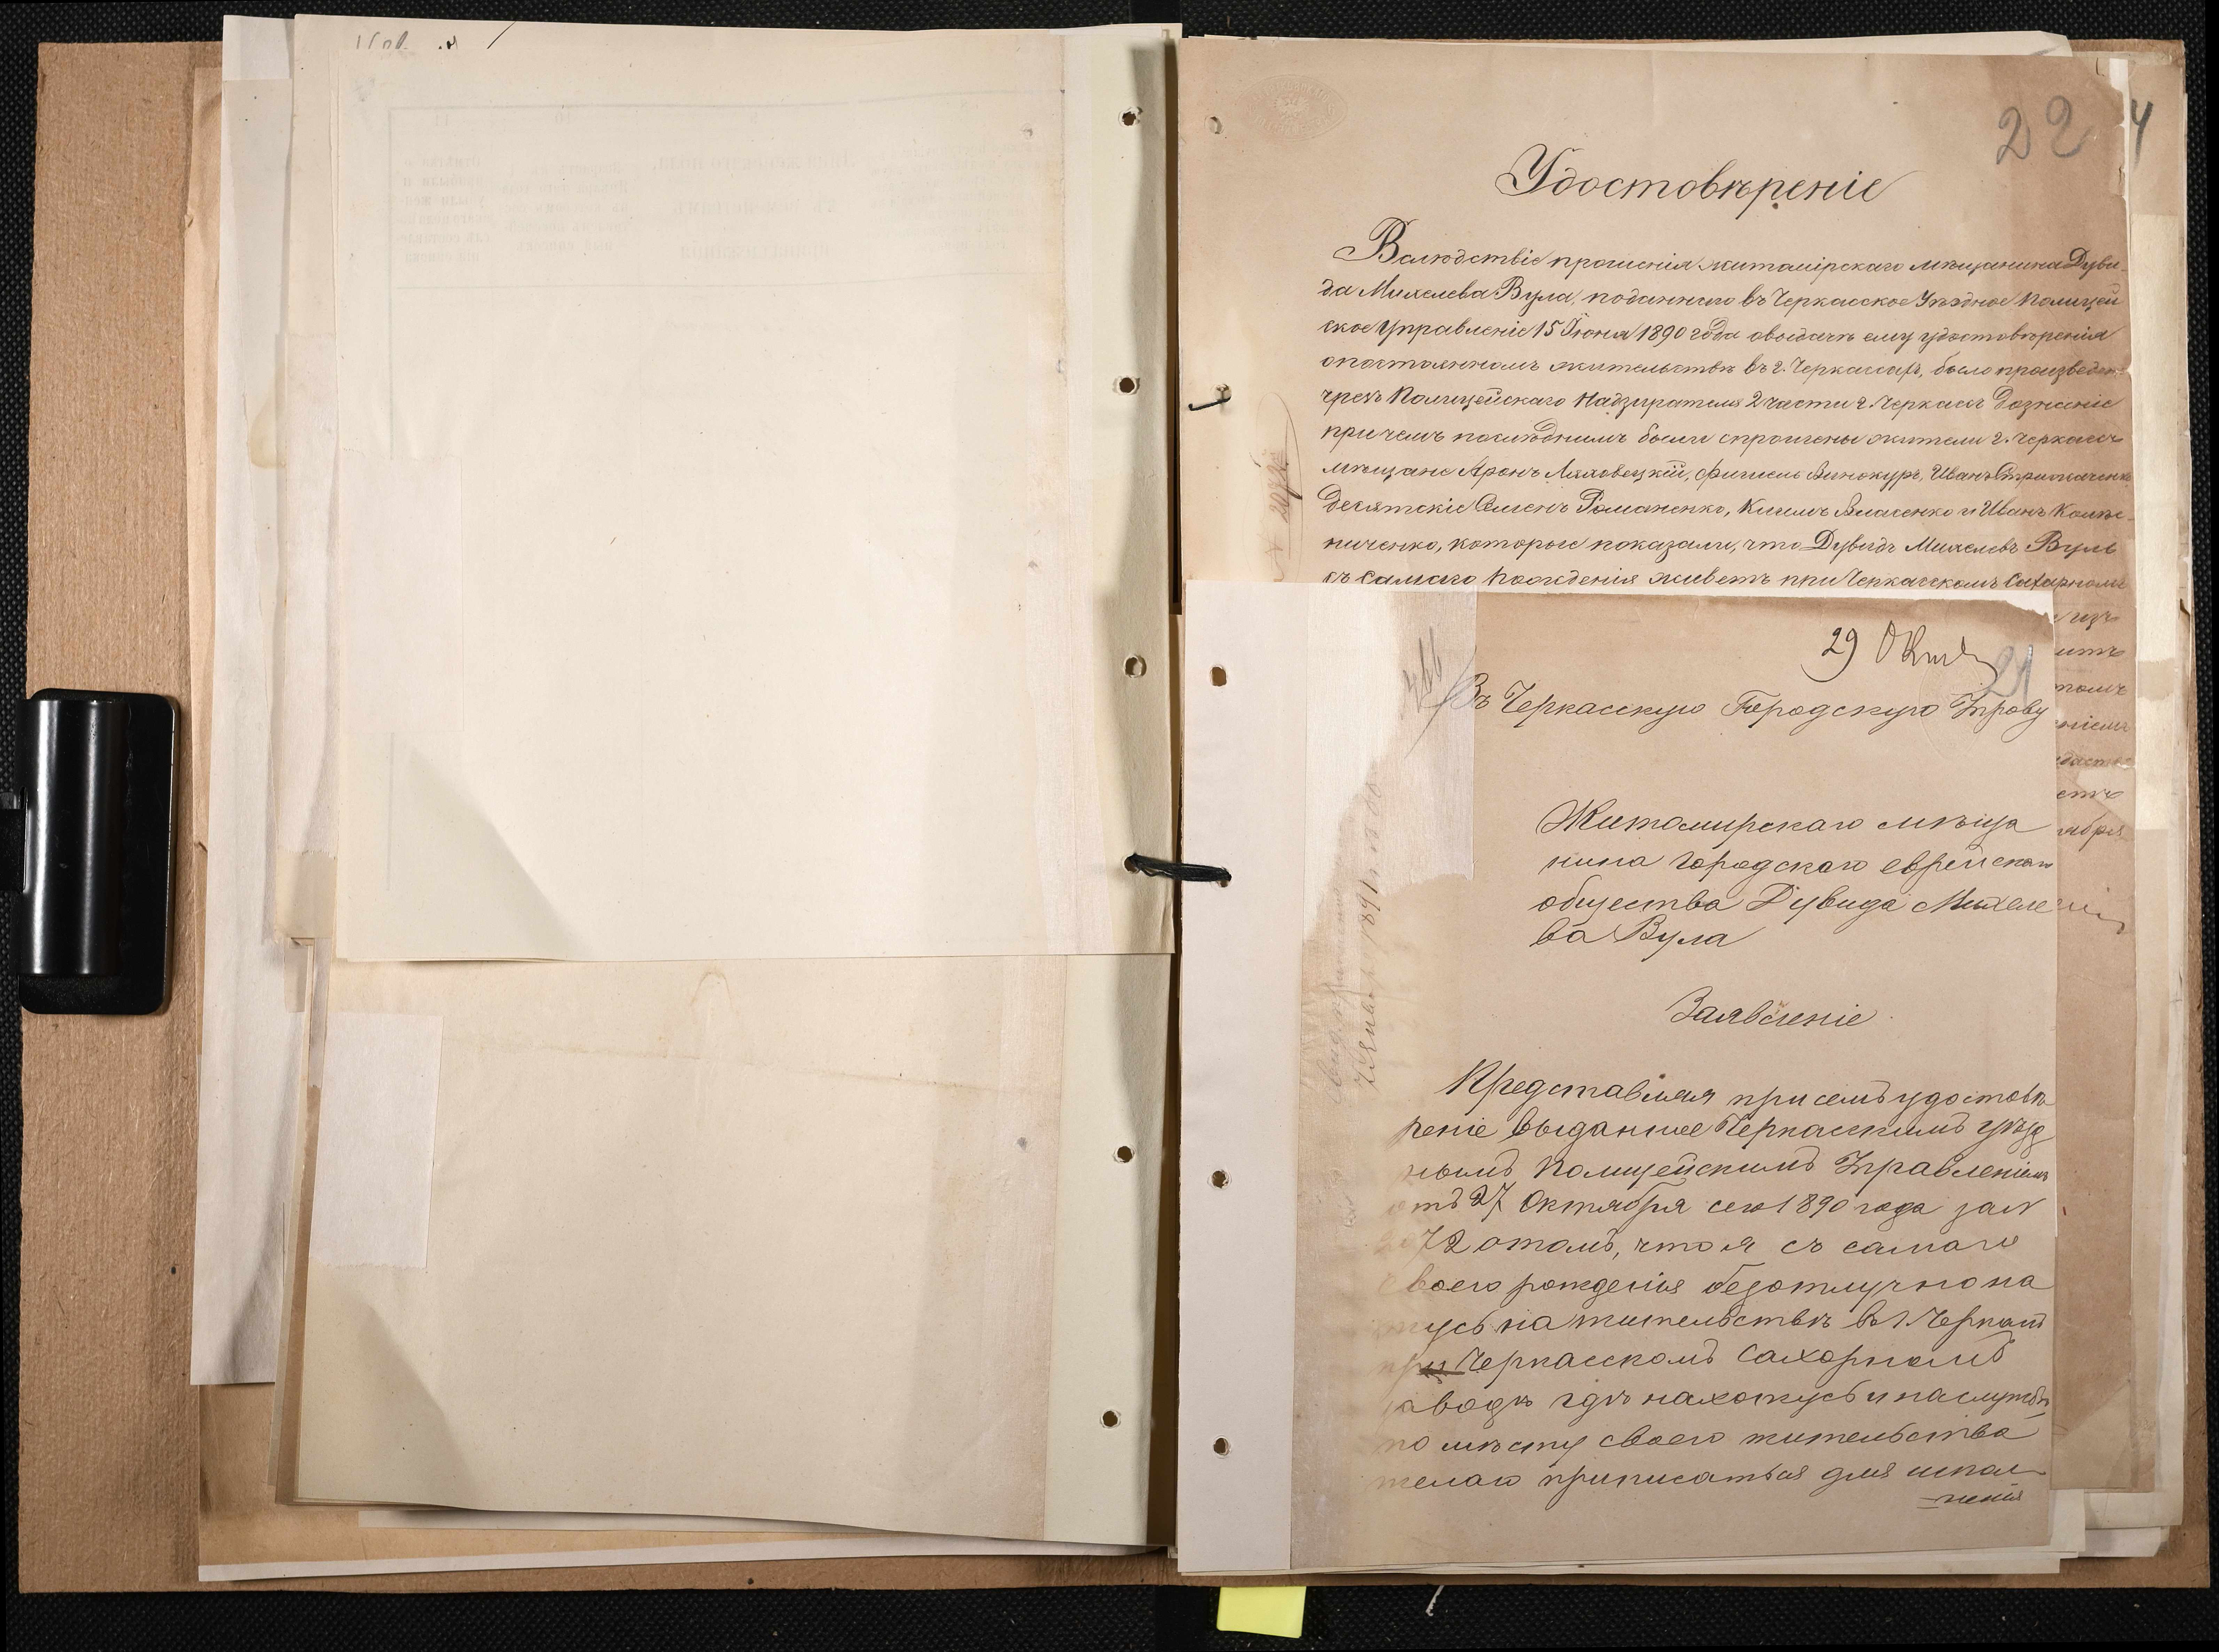 22
4
Удостовѣреніе
Вслѣдствіе прошенія житомірскаго мѣщанина Дуви-
да Михелева Вула, поданнаго въ Черкасское Уѣздное Полицей
ское Управленіе 15 Іюня 1890 года о выдачѣ ему удостовѣренія
о постоянномъ жительствѣ въ г. Черкассахъ, было произведено
чрезъ Полицейскаго Надзирателя 2 части г. Черкассъ дознаніе
при чемъ послѣднимъ были спрошены жители г. Черкассъ
мѣщане Аронъ Ляховецкій, Фишель Винокуръ, Иванъ
десятскіе Семенъ Романенко, Власенко и Иванъ Колѣс-
ниченко, которые показали, что Дувидъ Михелевъ Вулъ
съ самаго рожденія живетъ при Черкасскомъ Сахарномъ
29
21
Въ Черкасскую Городскую Управу
Житомирскаго мѣща
нина городскаго еврейскаго
общества Дувида Михеле
ва Вула
Заявленіе
Представляя при семъ удостовѣ
реніе выданное Черкасскимъ уѣзд
нымъ Полицейскимъ Управленіемъ
отъ 27 Октября сего 1890 года за №
72 о томъ, что я съ самаго
своего рожденія безотлучно на
жусь на жительствѣ въ г. Черкас
при Черкасскомъ Сахарномъ
заводѣ гдѣ нахожусь и на службѣ
по мѣсту своего жительства
желаю приписаться для испол
нения